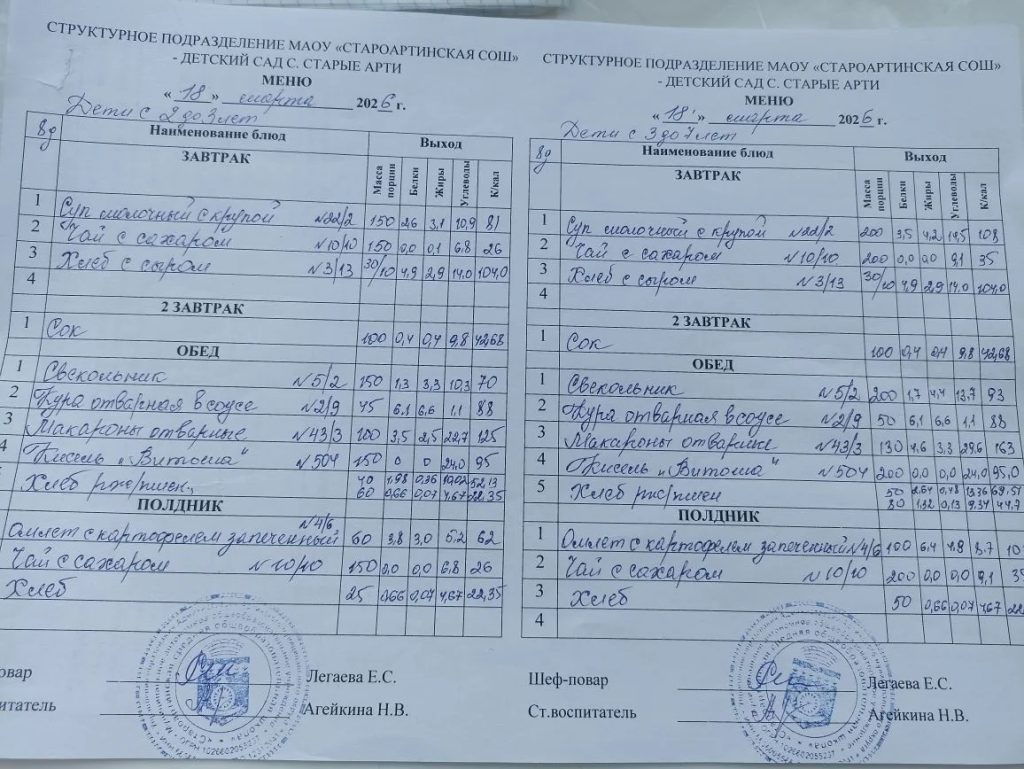 СТРУКТУРНОЕ ПОДРАЗДЕЛЕНИЕ МАОУ «СТАРОАРТИНСКАЯ СОШ»
- ДЕТСКИЙ САД С. СТАРЫЕ АРТИ
МЕНЮ
« 18 » марта 2026 г.
Дети с 2 до 3 лет
8д Наименование блюд Выход
ЗАВТРАК Масса порции Белки Жиры Углеводы К/кал
1 Суп молочный с крупой №22/2 150 2,6 3,1 10,9 81
2 Чай с сахаром №10/10 150 0,0 0,1 6,8 26
3 Хлеб с сыром №3/13 30/10 4,9 2,9 14,0 104,0
4
2 ЗАВТРАК
1 Сок 100 0,4 0,4 9,8 42,68
ОБЕД
1 Свекольник №5/2 150 1,3 3,3 10,3 70
2 Кура отварная в соусе №2/9 45 6,1 6,6 1,1 88
3 Макароны отварные №43/3 100 3,5 2,5 22,7 125
4 Кисель „Витоша" №504 150 0 0 24,0 95
Хлеб рж/пшен, 40 1,98 0,36 10,02 52,13
60 0,66 0,07 4,67 22,35
ПОЛДНИК
Омлет с картофелем запеченный №4/6 60 3,8 3,0 5,2 62
Чай с сахаром №10/10 150 0,0 0,0 6,8 26
Хлеб 25 0,66 0,07 4,67 22,35
повар Легаева Е.С.
итатель Агейкина Н.В.
СТРУКТУРНОЕ ПОДРАЗДЕЛЕНИЕ МАОУ «СТАРОАРТИНСКАЯ СОШ»
- ДЕТСКИЙ САД С. СТАРЫЕ АРТИ
МЕНЮ
« 18 » марта 2026 г.
Дети с 3 до 7 лет
8д Наименование блюд Выход
ЗАВТРАК Масса порции Белки Жиры Углеводы К/кал
1 Суп молочный с крупой №22/2 200 3,5 4,2 14,5 108
2 Чай с сахаром №10/10 200 0,0 0,0 9,1 35
3 Хлеб с сыром №3/13 30/10 4,9 2,9 14,0 104,0
4
2 ЗАВТРАК
1 Сок 100 0,4 0,4 9,8 42,68
ОБЕД
1 Свекольник №5/2 200 1,7 4,4 13,7 93
2 Кура отварная в соусе №2/9 50 6,1 6,6 1,1 88
3 Макароны отварные №43/3 130 4,6 3,3 29,6 163
4 Кисель „Витоша" №504 200 0,0 0,0 24,0 95,0
5 Хлеб рж/пшен 50 2,64 0,48 13,36 69,51
80 1,32 0,13 9,34 44,7
ПОЛДНИК
1 Омлет с картофелем запеченный №4/6 100 6,4 4,8 8,7 10
2 Чай с сахаром №10/10 200 0,0 0,0 9,1 35
3 Хлеб 50 0,66 0,07 4,67 22
4
Шеф-повар Легаева Е.С.
Ст.воспитатель Агейкина Н.В.